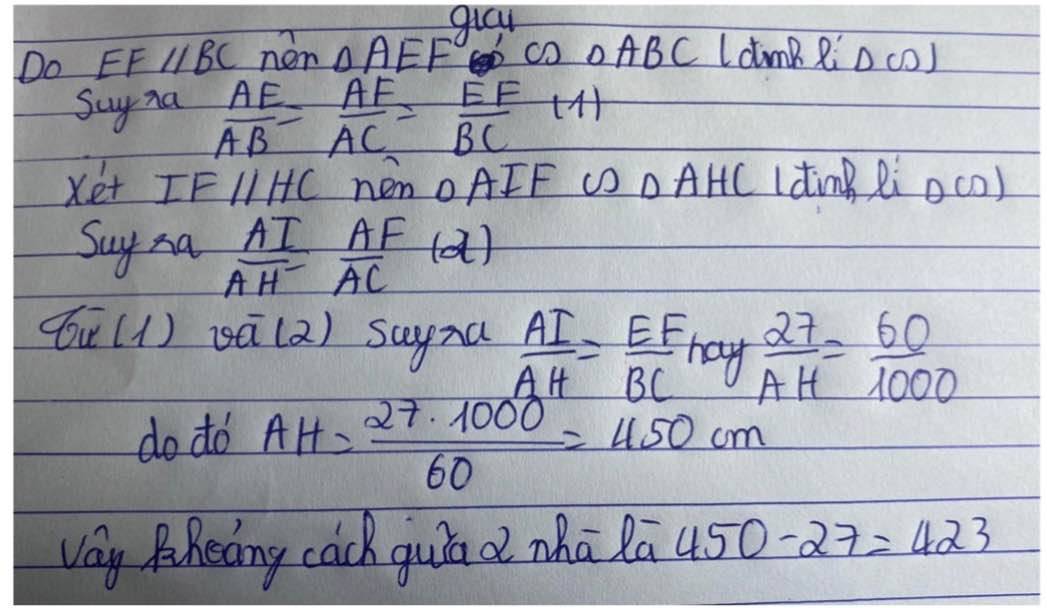 giải
Do EF // BC nên ΔAEF ∽ ΔABC (định lí Δ∽)
Suy ra AE/AB = AF/AC = EF/BC (1)
Xét IF // HC nên ΔAIF ∽ ΔAHC (định lí Δ∽)
Suy ra AI/AH = AF/AC (2)
Từ (1) và (2) Suy ra AI/AH = EF/BC hay 27/AH = 60/1000
do đó AH = 27.1000/60 = 450 cm
Vậy khoảng cách giữa 2 nhà là 450-27=423